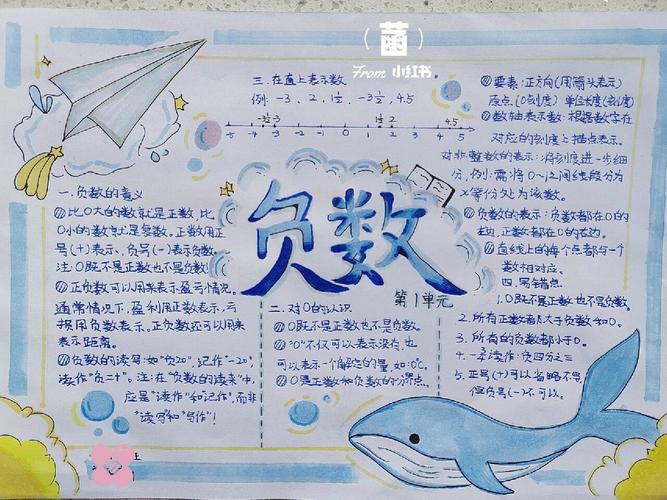 菌
From 小红书
三.在直上表示数
例: -3、2、1½、-3½、4.5
-3½ -3 1½ 2 4.5
-5 -4 -3 -2 -1 0 1 2 3 4 5
负数
第1单元
一.负数的意义
①比0大的数就是正数,比
0小的数就是负数。正数用正
号(+)表示、负号(-)表示负数
注:0既不是正数也不是负数!
②正负数可以用来表示盈亏情况。
通常情况下,盈利用正数表示,亏
损用负数表示。正负数还可以用来
表示距离。
③负数的读写:如"负20",记作"-20"
读作"负二十"。注:在"负数的读来"中,
应是"读作"和"记作",而非
"读写"和"写作"!
二.对0的认识
①0既不是正数也不是负数。
②"0"不仅可以表示没有,也
可以表示一个确定的量,如:0℃。
③0是正数和负数的分界点。
①要素:正方向(用箭头表示)
原点(0刻度) 单位长度(刻度)
②数轴表示数:根据数字在
对应的刻度上描点表示。
对非整数的表示:将刻度进一步细
分,例:需将0~1之间线段分为
x等份处为该数。
③负数的表示:负数都在0的
左边,正数都在0的右边。
④直线上的每个点都与一个
数相对应。
四.易错点
1.0既不是正数也不是负数。
2.所有正数都大于负数和0。
3.所有的负数都小于0。
4. 读作:负四分之三
5.正号(+)可以省略不写
但负号(-)不可以。